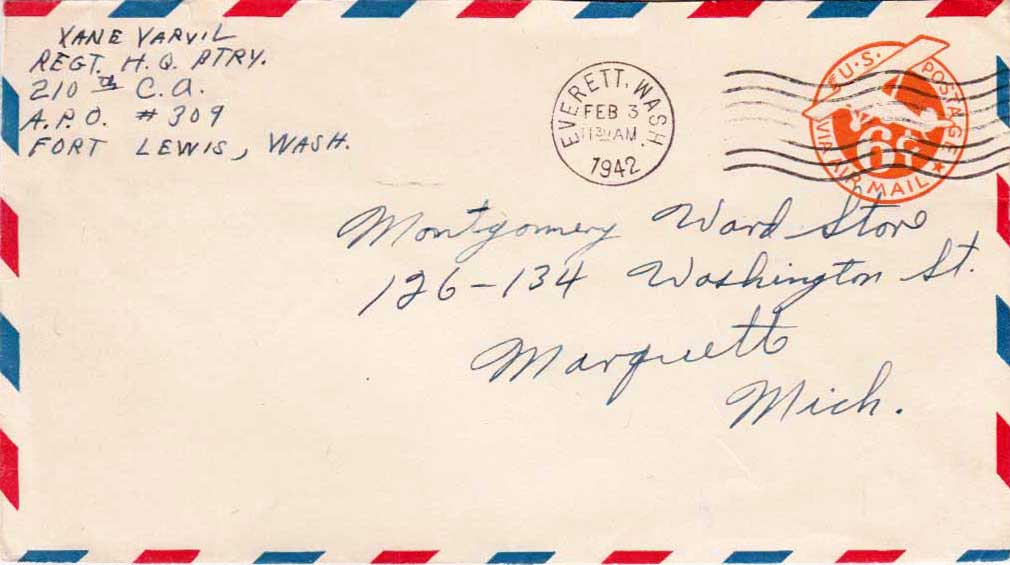 VANE VARVIL
REGT. H.Q. BTRY.
210th C.A.
A.P.O. #309
FORT LEWIS, WASH.
EVERETT, WASH.
FEB 3
1130 AM
1942
U.S. POSTAGE
6¢
VIA AIR MAIL
Montgomery Ward Store
126-134 Washington St.
Marquette
Mich.